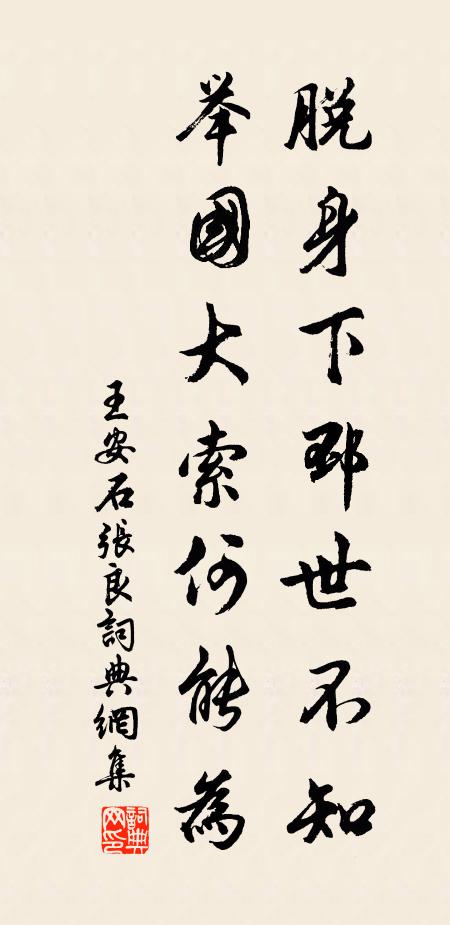 脱身下邳世不知
举國大索何能為
王安石張良詞典網集
詞典
网印